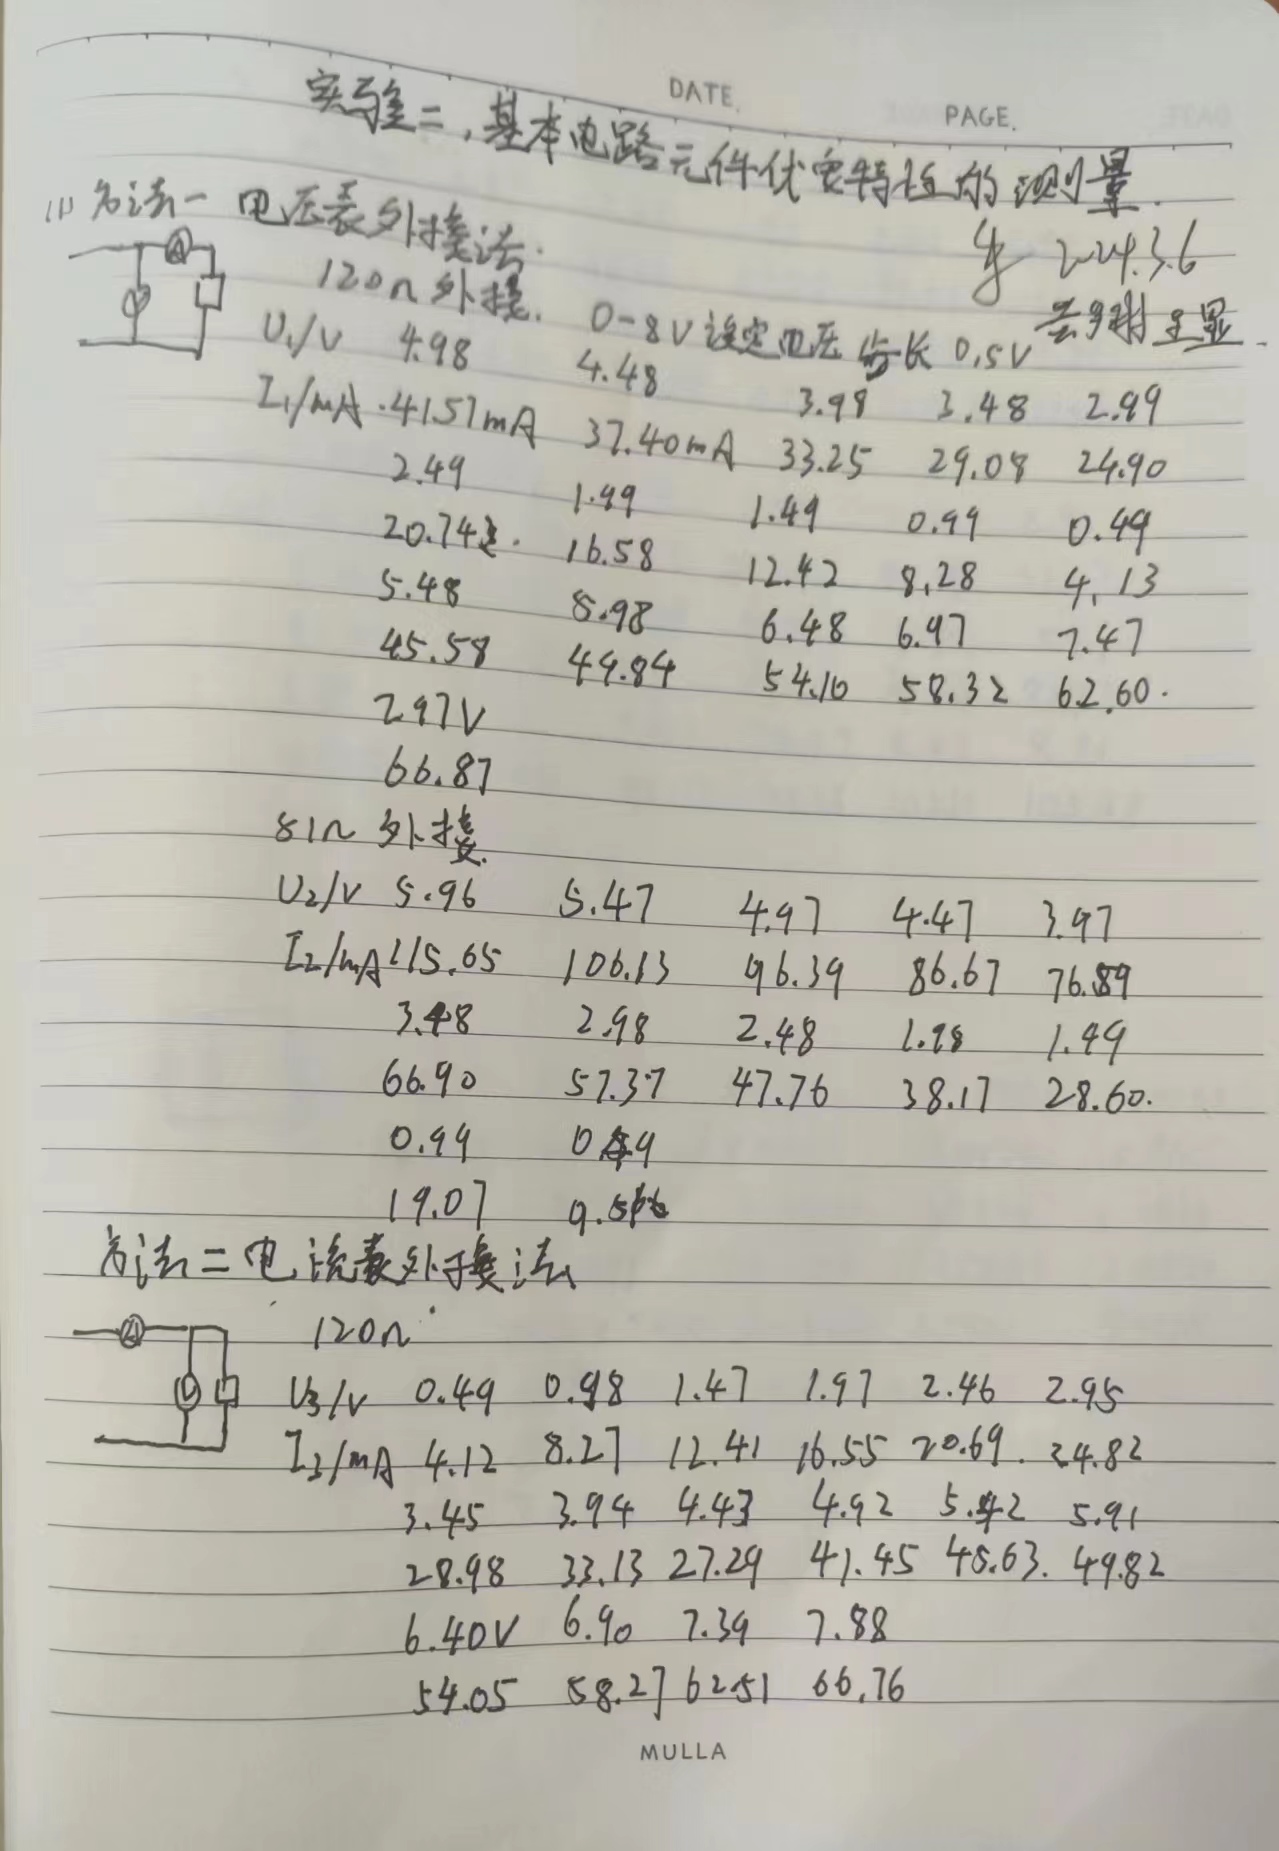 DATE.
PAGE.
实验二,基本电路元件伏安特性的测量.
(1) 方法一 电压表外接法.
2024.3.6
A
V
120Ω 外接. 0-8V 设定电压 步长 0.5V
U₁/V 4.98 4.48 3.98 3.48 2.99
I₁/mA 41.57mA 37.40mA 33.25 29.08 24.90
2.49 1.99 1.49 0.99 0.49
20.74 16.58 12.42 8.28 4.13
5.48 5.98 6.48 6.97 7.47
45.58 49.84 54.10 58.32 62.60.
7.97V
66.87
81Ω 外接.
U₂/V 5.96 5.47 4.97 4.47 3.97
I₂/mA 115.65 106.13 96.39 86.67 76.89
3.48 2.98 2.48 1.98 1.49
66.90 57.37 47.76 38.17 28.60.
0.99 0.49
19.07
方法二 电流表外接法
A
V
120Ω
U₃/V 0.49 0.98 1.47 1.97 2.46 2.95
I₃/mA 4.12 8.27 12.41 16.55 20.69. 24.82
3.45 3.94 4.43 4.92 5.42 5.91
28.98 33.13 27.29 41.45 45.63. 49.82
6.40V 6.90 7.39 7.88
54.05 58.27 62.51 66.76
MULLA